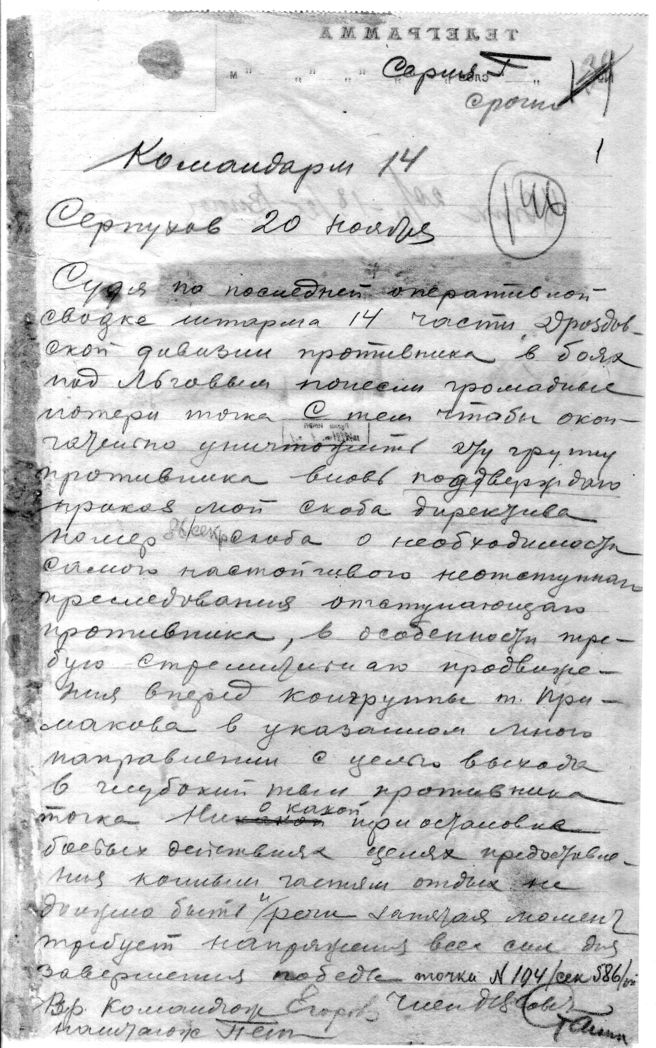 ТЕЛЕГРАММА
Серия Г
срочно
1
Командарм 14
146
Серпухов 20 ноября
Судя по последней оперативной
сводке штарма 14 части Дроздов-
ской дивизии противника в боях
под Льговым понесли громадные
потери точка С тем чтобы окон-
чательно уничтожить эту группу
противника вновь подтверждаю
приказ мой скоба директива
номер 86/сек скоба о необходимости
самого настойчивого неотступнаго
преследования отступающаго
противника, в особенности тре-
бую стремительнаго продвиже-
ния вперед конгруппы т. При-
макова в указанном мною
направлении с целью выхода
в глубокий тыл противника
точка Ни о какой приостановке
боевых действиях целях предоставле-
ния конным частям отдых не
должно быть и речи запятая момент
требует напряжения всех сил для
завершения победы точка N 194/сек 586/оп
Вр. Командюж Егоров Член РВСов
Наштаюж Петин